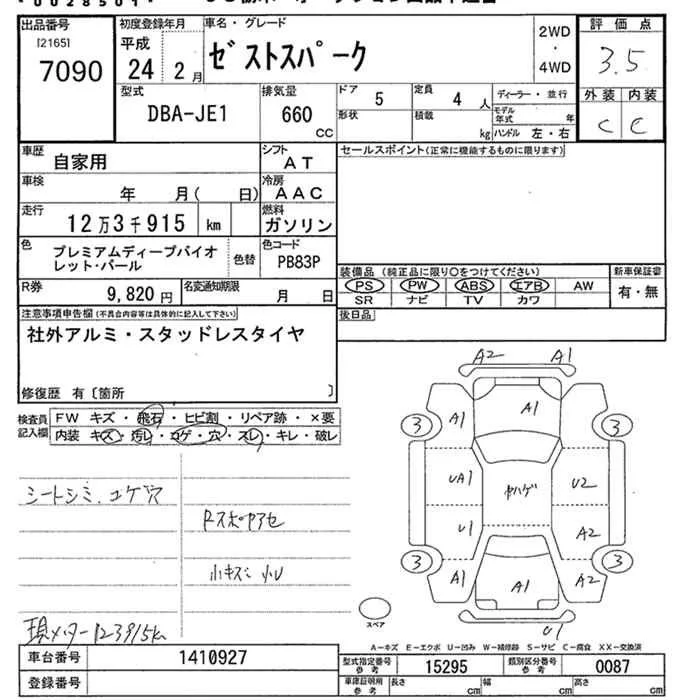 出品番号
[2165]
7090
初度登録年月
平成
24 2 月
車名・グレード
ゼストスパーク
2WD
・
4WD
評価点
3.5
外装 内装
C C
型式
DBA-JE1
排気量
660
CC
ドア
5
定員
4 人
ディーラー・並行
形状
積載
kg
モデル年式 年
ハンドル 左・右
車歴
自家用
シフト
AT
セールスポイント(正常に機能するものに限ります)
車検
年 月( 日)
冷房
AAC
走行
12万3千915 km
燃料
ガソリン
色
プレミアムディープバイオ
レット・パール
色替
色コード
PB83P
装備品 (純正品に限り○をつけてください)
新車保証書
PS PW ABS エアB AW
有・無
SR ナビ TV カワ
R券
9,820 円
名変通知期限
月 日
注意事項申告欄(不具合内容等は具体的に記入して下さい)
後日品
社外アルミ・スタッドレスタイヤ
修復歴 有〔箇所 〕
検査員
記入欄
FW キズ・飛石・ヒビ割・リペア跡・×要
内装 キズ・汚レ・コゲ・穴・スレ・キレ・破レ
シートシミ、コゲ穴
Rスポヤアセ
小キズ 小U
現メーター123915km
A2 A1
A1 A1
3 3
UA1 ヤハゲ U2
U1 A2
3 3
A1 A1 A2
U1
スペア
A−キズ E−エクボ U−凹み W−補修跡 S−サビ C−腐食 XX−交換済
車台番号
1410927
型式指定番号
参考
15295
類別区分番号
参考
0087
登録番号
車庫証明用
参考
長さ cm
幅 cm
高さ cm